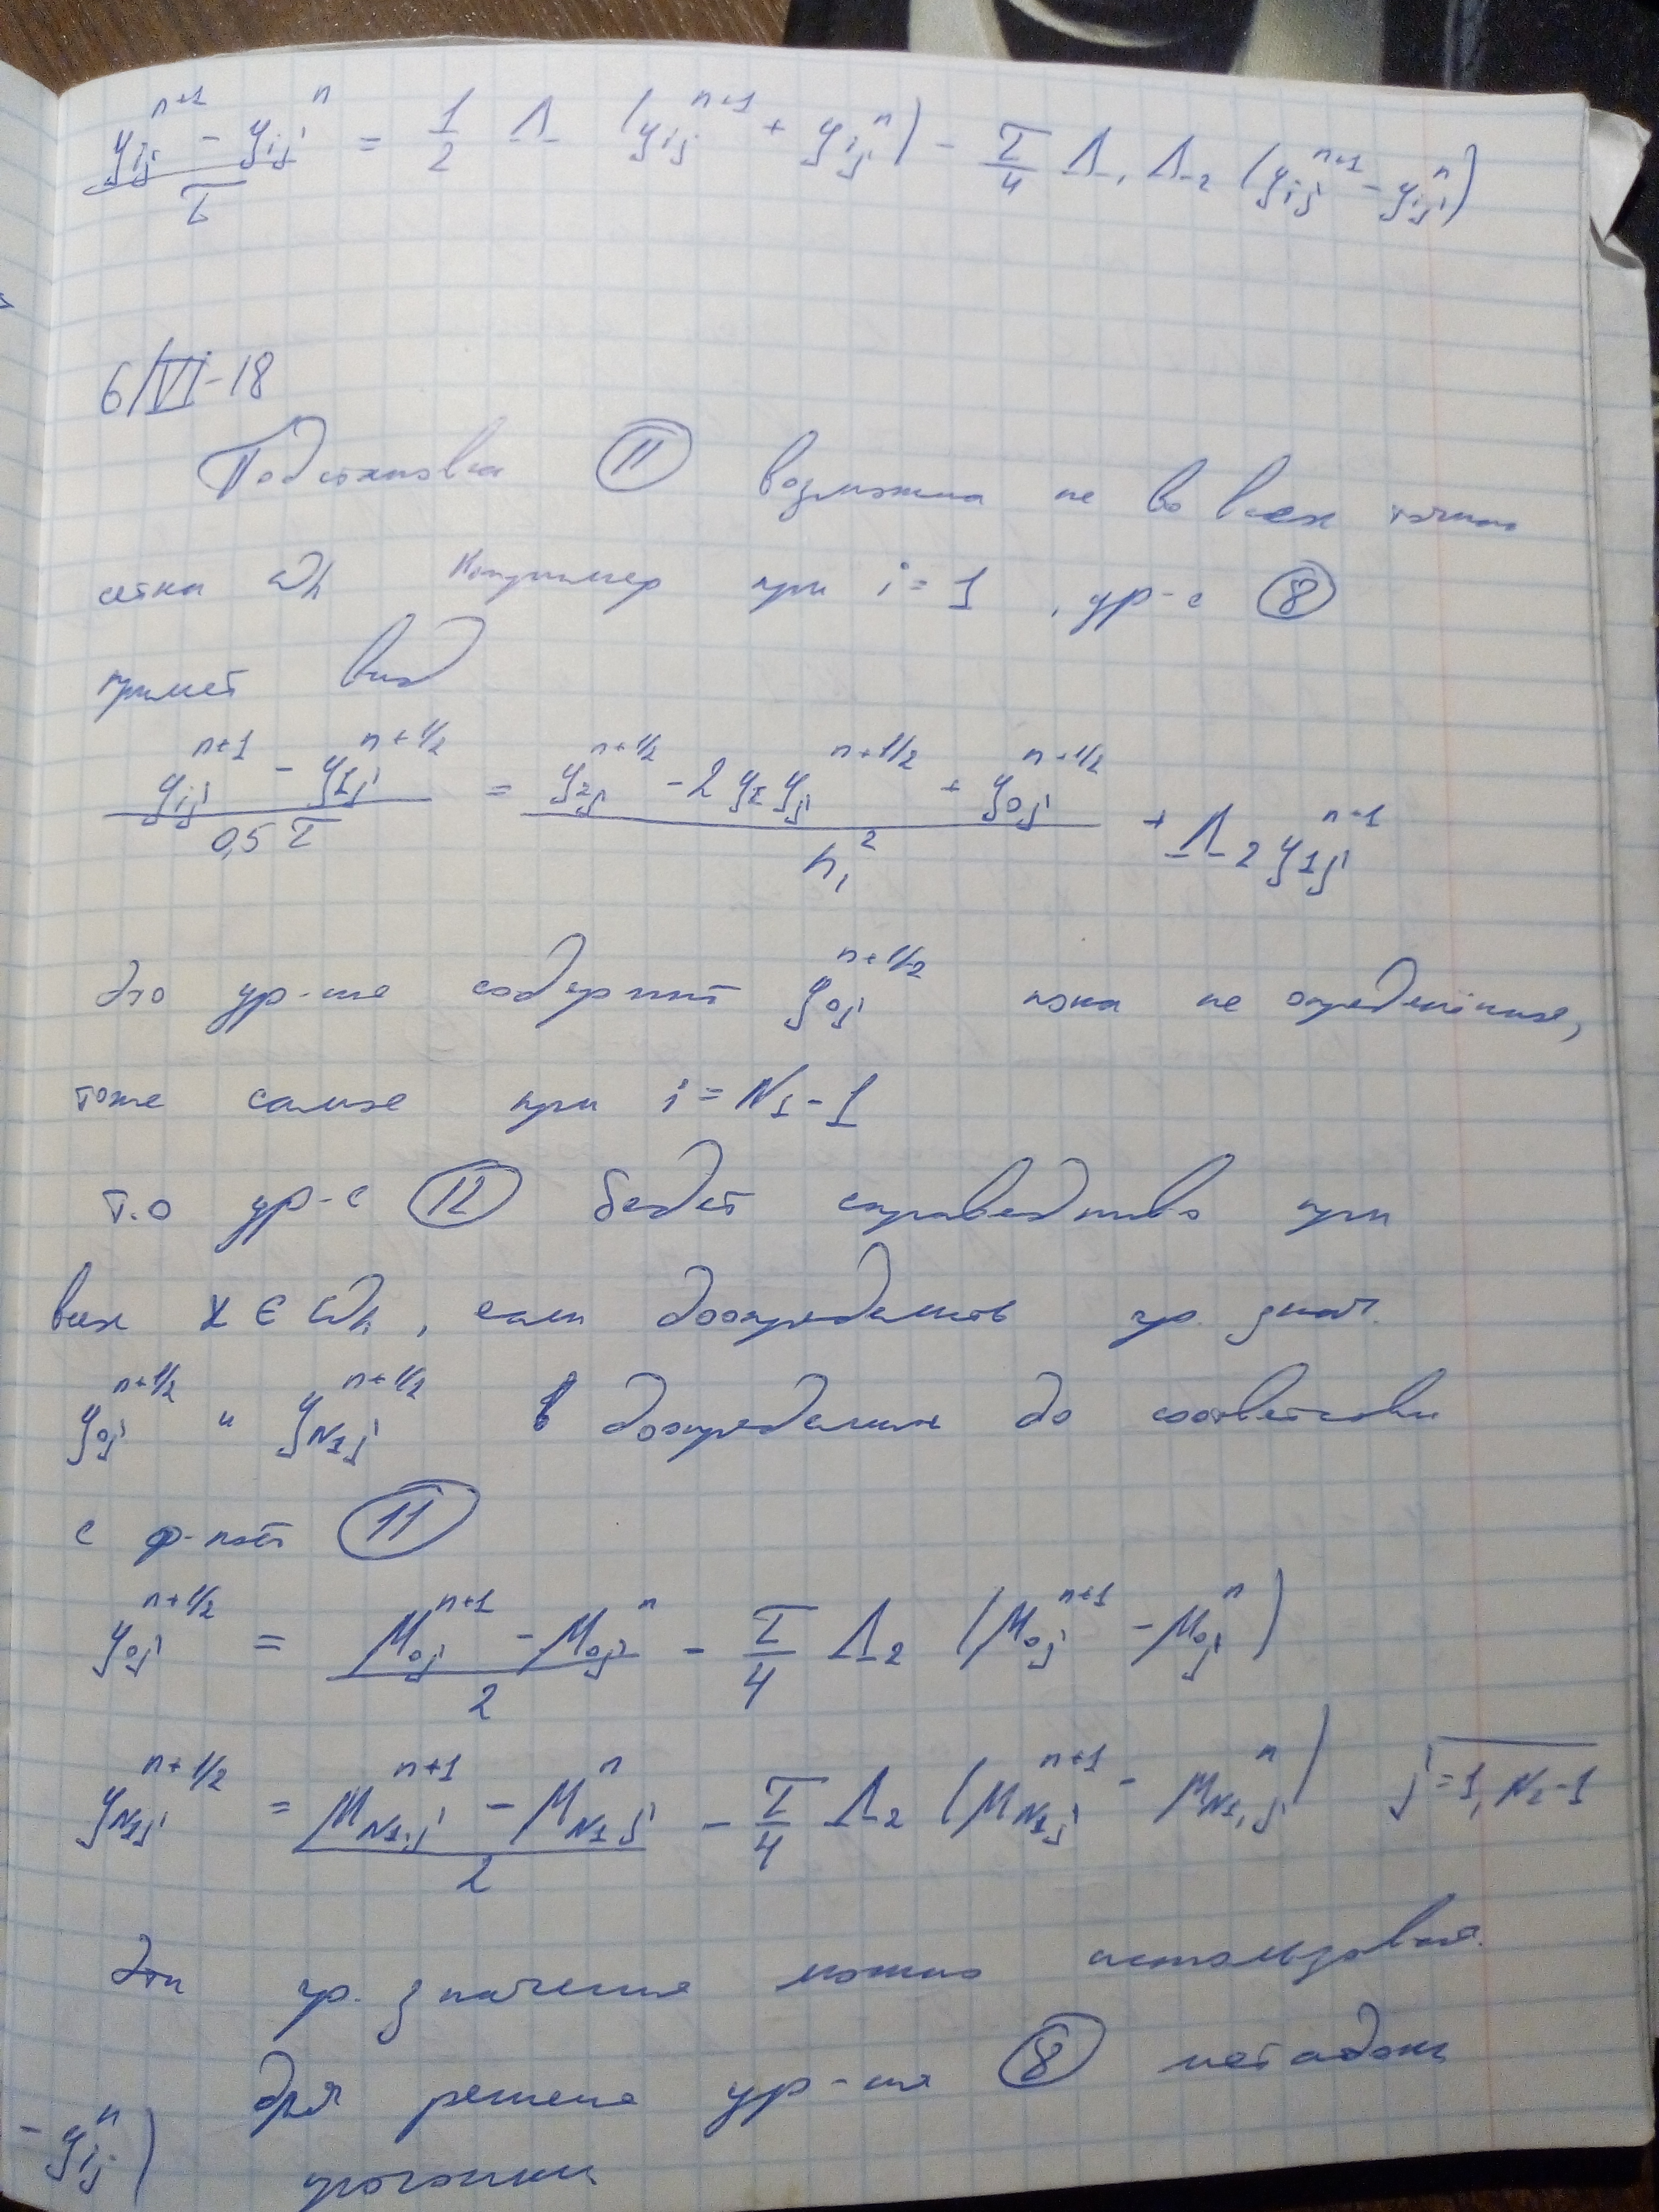 (y_ij^{n+1} - y_ij^n) / τ = 1/2 Λ (y_ij^{n+1} + y_ij^n) - τ/4 Λ_1 Λ_2 (y_ij^{n+1} - y_ij^n)
6/VI-18
Подстановка (11) возможна не во всех точках
сетки ω_h Например при i = 1, ур-е (8)
примет вид
(y_ij^{n+1} - y_1j^{n+1/2}) / 0,5τ = (y_2j^{n+1/2} - 2 y_1 y_j^{n+1/2} + y_0j^{n+1/2}) / h_1^2 + Λ_2 y_1j^{n+1}
Это ур-ние содержит y_0j^{n+1/2} пока не определённые,
тоже самое при i = N_1 - 1
т.о ур-е (12) будет справедливо при
всех x ∈ ω_h, если доопределить гр. знач.
y_0j^{n+1/2} и y_{N1j}^{n+1/2} в доопределим до соответствии
с ф-лой (11)
y_0j^{n+1/2} = (μ_0j^{n+1} - μ_0j^n) / 2 - τ/4 Λ_2 (μ_0j^{n+1} - μ_0j^n)
y_{N1j}^{n+1/2} = (μ_{N1,j}^{n+1} - μ_{N1j}^n) / 2 - τ/4 Λ_2 (μ_{N1j}^{n+1} - μ_{N1,j}^n) j = 1, N_2 - 1
Эти гр. значения можно использовать
для решения ур-ия (8) методом
- y_ij^n) прогонки